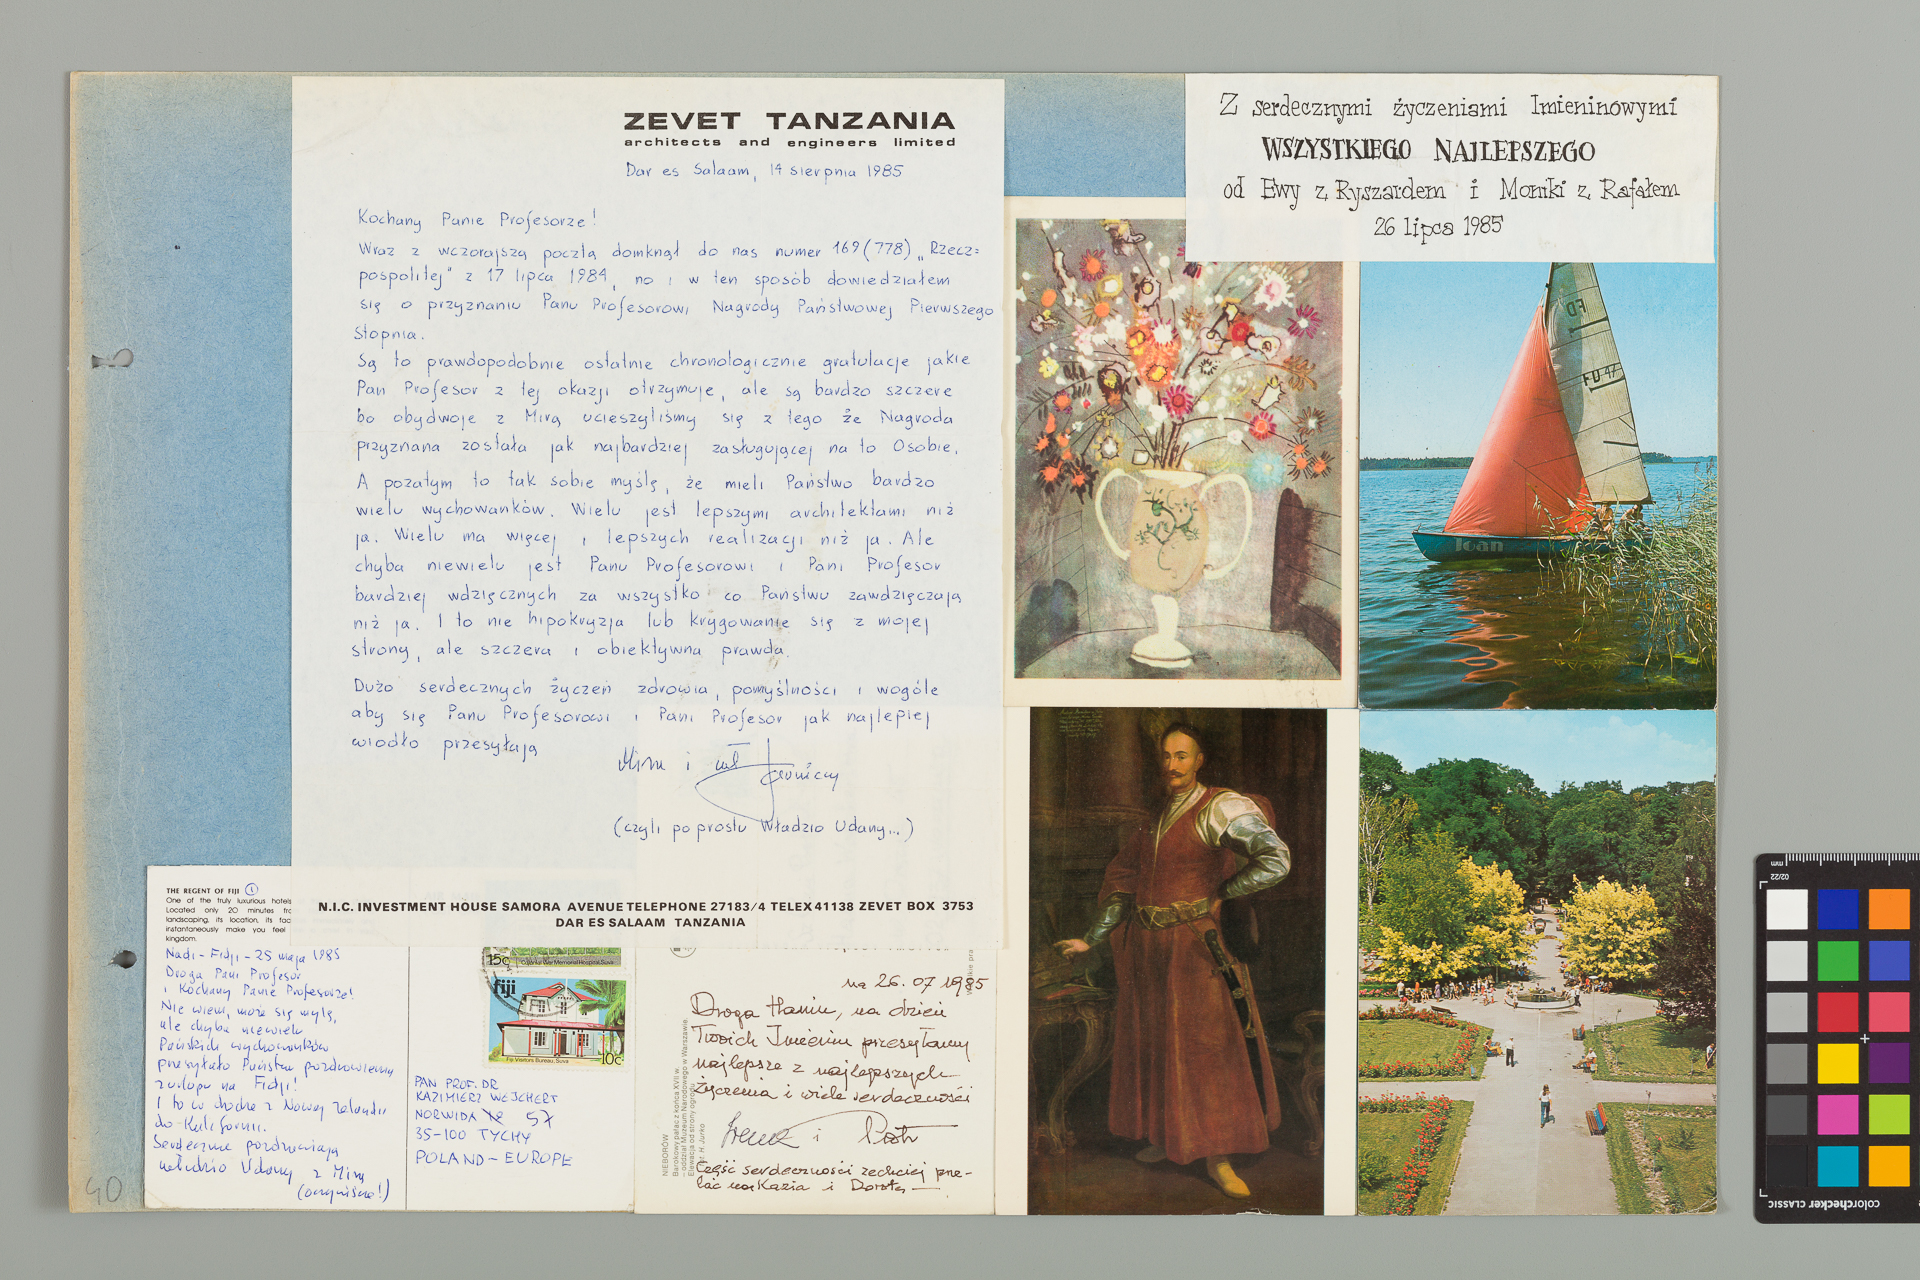 ZEVET TANZANIA
architects and engineers limited
Dar es Salaam, 14 sierpnia 1985
Kochany Panie Profesorze!
Wraz z wczorajszą pocztą domknął do nas numer 169 (778) „Rzecz=
pospolitej" z 17 lipca 1984, no i w ten sposób dowiedziałem
się o przyznaniu Panu Profesorowi Nagrody Państwowej Pierwszego
Stopnia.
Są to prawdopodobnie ostatnie chronologicznie gratulacje jakie
Pan Profesor z tej okazji otrzymuje, ale są bardzo szczere
bo obydwoje z Mirą ucieszyliśmy się z tego że Nagroda
przyznana została jak najbardziej zasługującej na to Osobie.
A pozatym to tak sobie myślę, że mieli Państwo bardzo
wielu wychowanków. Wielu jest lepszymi architektami niż
ja. Wielu ma więcej i lepszych realizacji niż ja. Ale
chyba niewielu jest Panu Profesorowi i Pani Profesor
bardziej wdzięcznych za wszystko co Państwu zawdzięczają
niż ja. I to nie hipokryzja lub krygowanie się z mojej
strony, ale szczera i obiektywna prawda.
Dużo serdecznych życzeń zdrowia, pomyślności i wogóle
aby się Panu Profesorowi i Pani Profesor jak najlepiej
wiodło przesyłają
Mira i
(czyli poprostu Władzio Udany...)
N.I.C. INVESTMENT HOUSE SAMORA AVENUE TELEPHONE 27183/4 TELEX 41138 ZEVET BOX 3753
DAR ES SALAAM TANZANIA
Z serdecznymi życzeniami Imieninowymi
WSZYSTKIEGO NAJLEPSZEGO
od Ewy z Ryszardem i Moniki z Rafałem
26 lipca 1985
FD
FD 47
Ioan
THE REGENT OF FIJI 1
One of the truly luxurious hotels
Located only 20 minutes
landscaping, its location, its
instantaneously make you feel
kingdom.
Nadi - Fidji - 25 maja 1985
Droga Pani Profesor
i Kochany Panie Profesorze!
Nie wiem, może się mylę,
ale chyba niewielu
Pańskich wychowanków
przesyłało Państwu pozdrowienia
z urlopu na Fidji!
I to w drodze z Nowej Zelandii
do Kalifornii.
Serdecznie pozdrawiają
Władzio Udany z Mirą
(oczywiście!)
15c
War Memorial Hospital, Suva
fiji
Fiji Visitors Bureau, Suva
10c
PAN PROF. DR
KAZIMIERZ WEJCHERT
NORWIDA 57
35-100 TYCHY
POLAND - EUROPE
NIEBORÓW
Barokowy pałac z końca XVII w.
- oddział Muzeum Narodowego w Warszawie.
Elewacja od strony ogrodu
Fot. H. Jurko
na 26.07 1985
Droga Haniu, na dzień
Twoich Imienin przesyłamy
najlepsze z najlepszych
życzenia i wiele serdeczności
Irena i Piotr
Część serdeczności zechciej prze-
lać na Kazia i Dorotę
40
mm
02/22
colorchecker CLASSIC